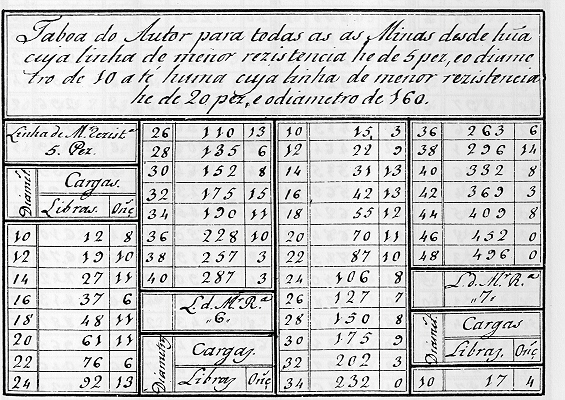 Taboa do Autor para todas as Minas desde hũa
cuja linha de menor rezistencia he de 5 pez, e o diame
tro de 10 até huma cuja linha de menor rezistencia
he de 20 pez, e o diametro de 160.
Linha de Mᵣ Rezistᵃ
5. Pez.
Diamᵗ. Cargas.
Libras. Onç
10 12 8
12 19 10
14 27 11
16 37 6
18 48 11
20 61 11
22 76 6
24 92 13
26 110 13
28 135 6
30 152 8
32 175 15
34 190 11
36 228 10
38 257 3
40 287 3
L. d. Mᵣ Rᵃ
"6"
Diametrꝭ Cargaz.
Libraz Onç
10 15 3
12 22 9
14 31 13
16 42 13
18 55 12
20 70 11
22 87 10
24 106 8
26 127 7
28 150 8
30 175 9
32 202 3
34 232 0
36 263 6
38 296 14
40 332 8
42 369 3
44 409 8
46 452 0
48 496 0
L. d. Mᵣ Rᵃ
"7"
Diamᵗ. Cargas
Libraz Onç
10 17 4